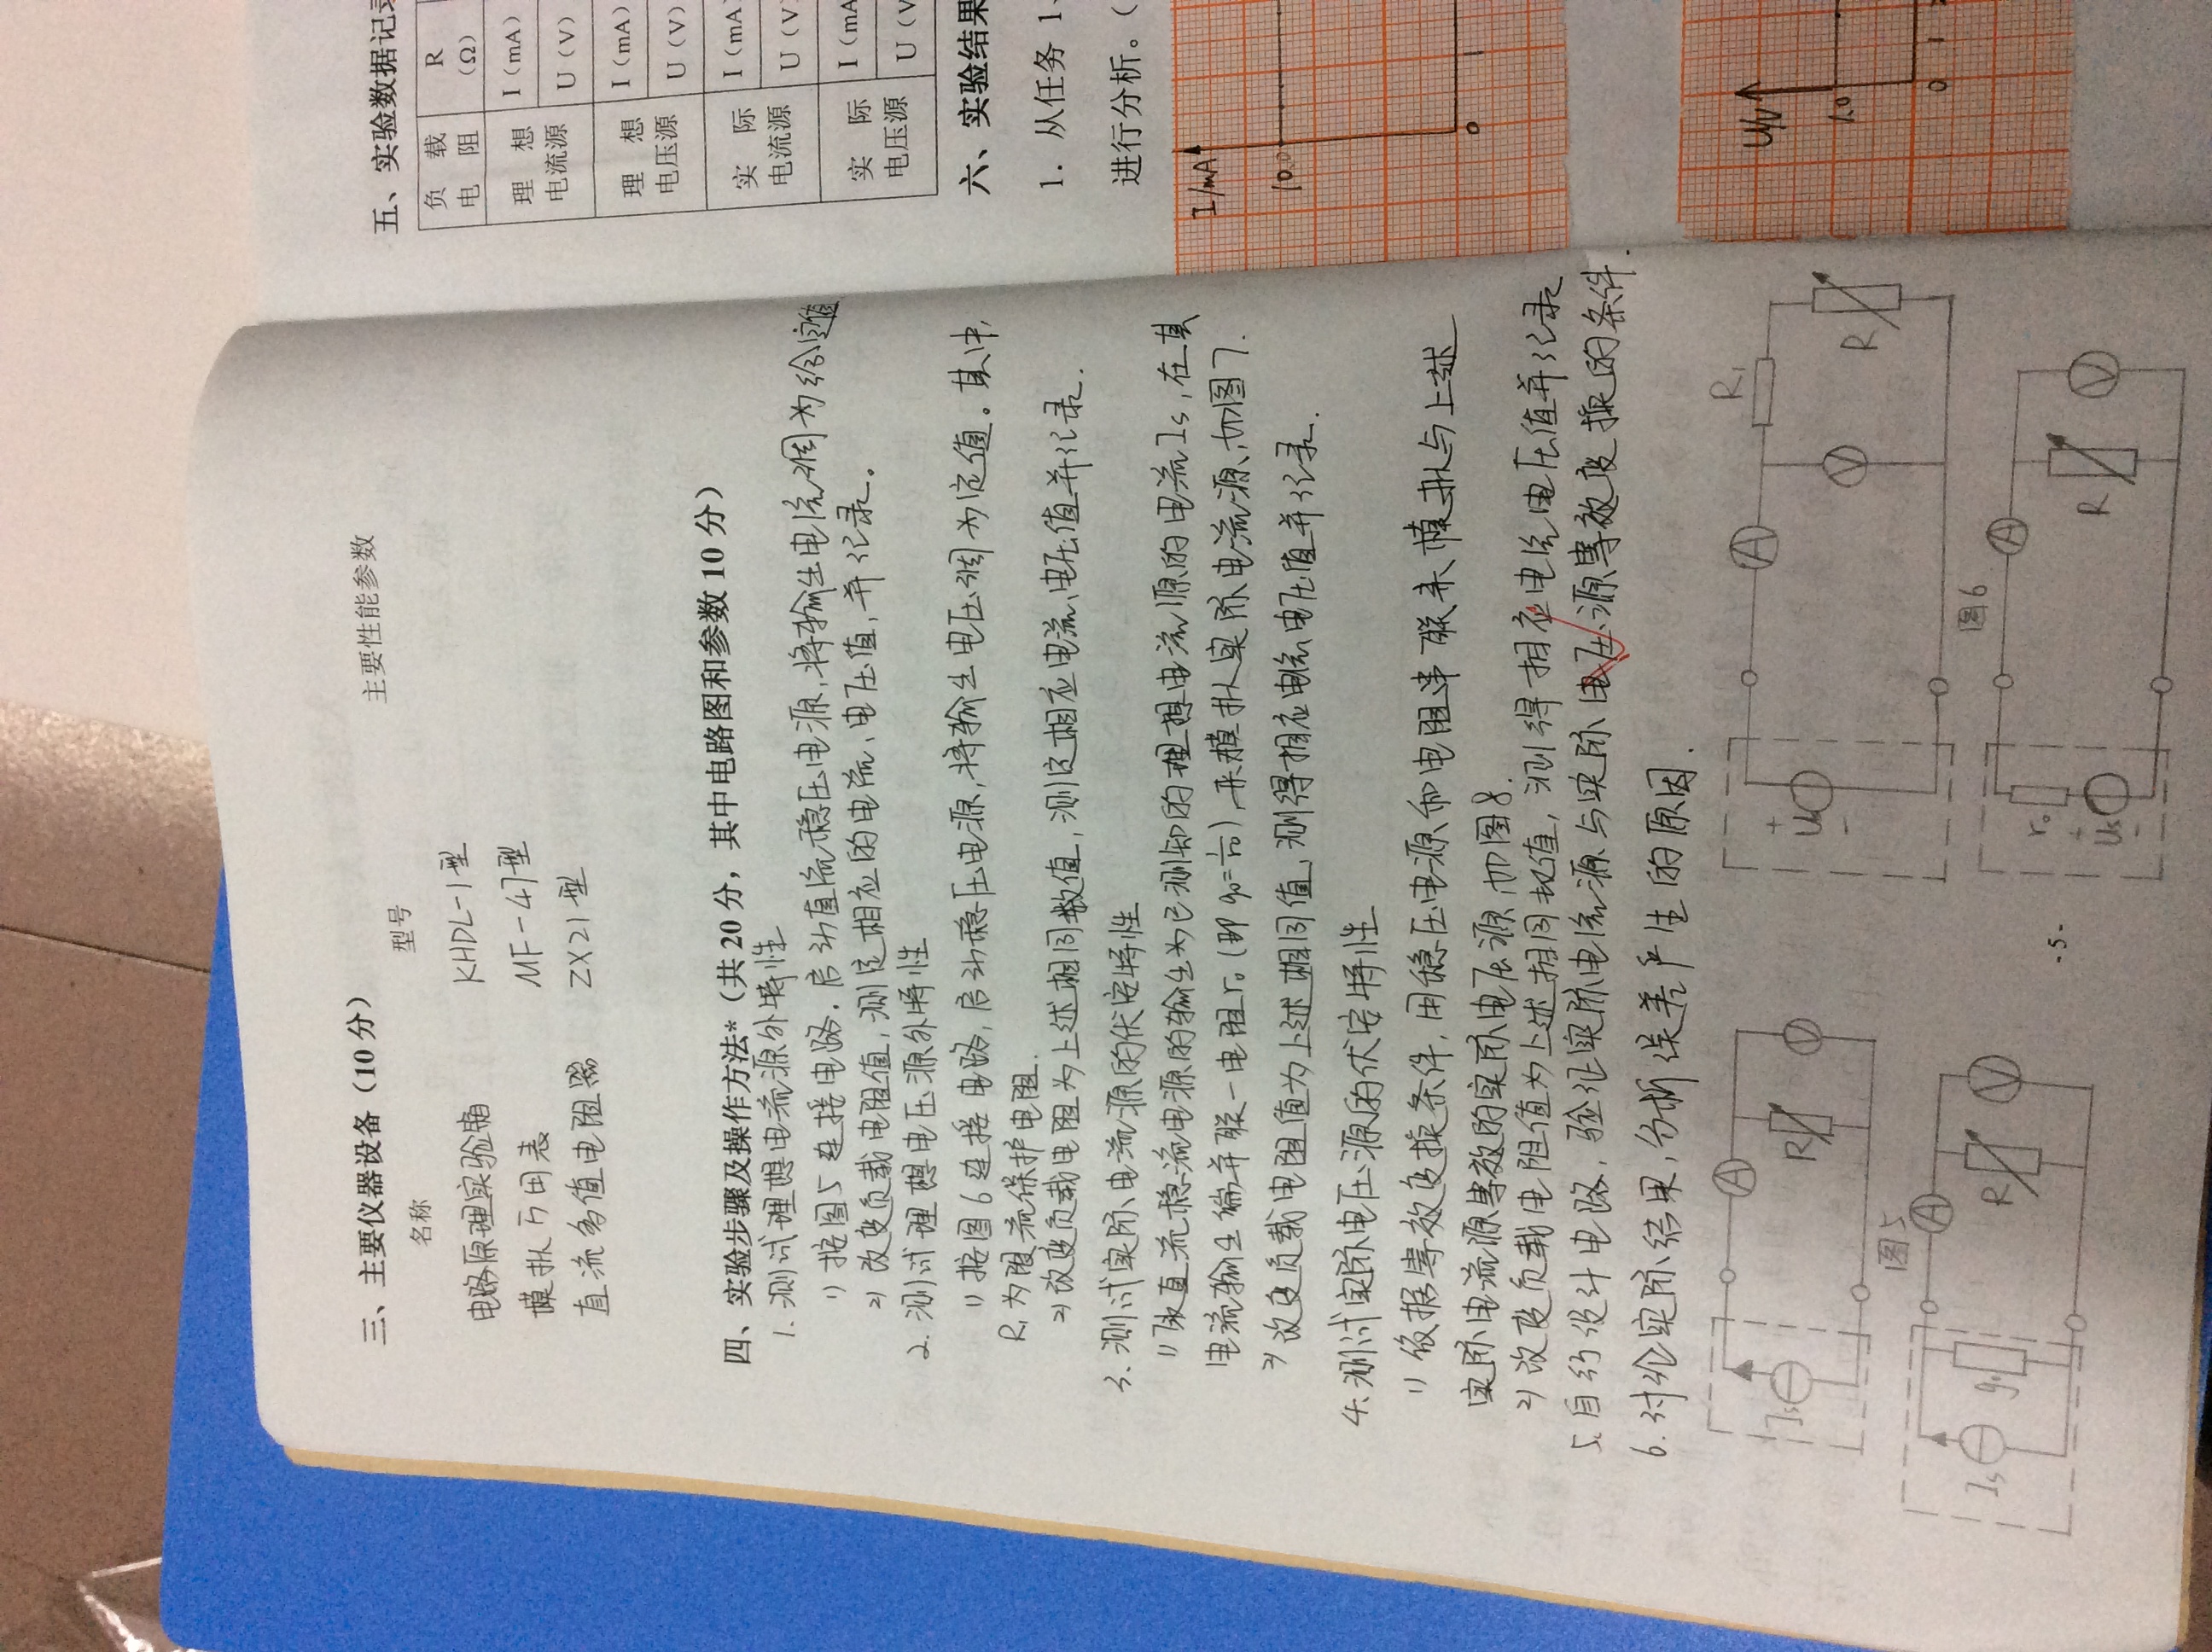 三、主要仪器设备（10 分）
名称 型号 主要性能参数
电路原理实验箱 KHDL-1型
模拟万用表 MF-47型
直流多值电阻器 ZX21型
四、实验步骤及操作方法*（共 20 分，其中电路图和参数 10 分）
1. 测试理想电流源外特性
1) 按图5连接电路. 启动直流稳压电源, 将输出电流调为给定值
2) 改变负载电阻值, 测定相应的电流、电压值, 并记录。
2. 测试理想电压源外特性
1) 按图6连接电路, 启动稳压电源, 将输出电压调为定值。其中,
R₁为限流保护电阻.
2) 改变负载电阻为上述相同数值, 测定相应电流、电压值并记录.
3. 测试实际电流源的伏安特性
1) 取直流稳流电源的输出为已测知的理想电流源的电流Is, 在其
电流输出端并联一电阻r₀ (即 g₀=1/r₀), 来模拟实际电流源, 如图7.
2) 改变负载电阻值为上述相同值, 测得相应电流电压值并记录.
4. 测试实际电压源的伏安特性
1) 依据等效变换条件, 用稳压电源和电阻串联来模拟与上述
实际电流源等效的实际电压源, 如图8.
2) 改变负载电阻值为上述相同数值, 测得相应电流电压值并记录
5. 自行设计电路, 验证实际电流源与实际电压源等效变换的条件.
6. 讨论实际结果, 分析误差产生的原因.
Is A R V
图5
+ U - A V R₁ R
图6
Is g₀ A R V
r₀ + Us - A R V
- 5 -
五、实验数据记录
负 载 R
电 阻 （Ω）
理 想 I（mA）
电流源 U（V）
理 想 I（mA）
电压源 U（V）
实 际 I（mA）
电流源 U（V
实 际 I（mA
电压源 U（V
六、实验结果
1. 从任务 1、
进行分析。（
I/mA
10.0
0 1
U/V
1.0
0 1 2